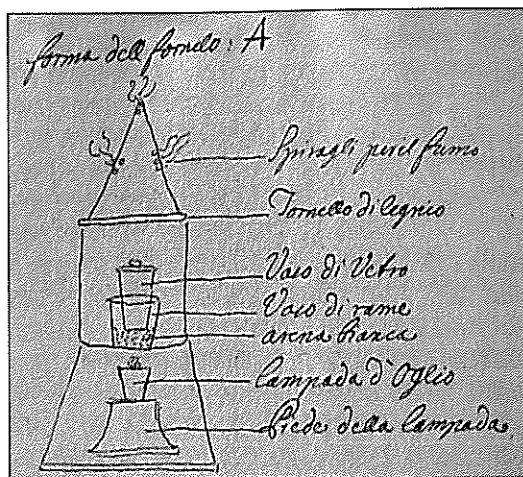 forma dell fornelo: A
Spiragli per il fumo
Tornello di legnio
Vaso di Vetro
Vaso di rame
arena bianca
lampada d'Oglio
Piede della lampada